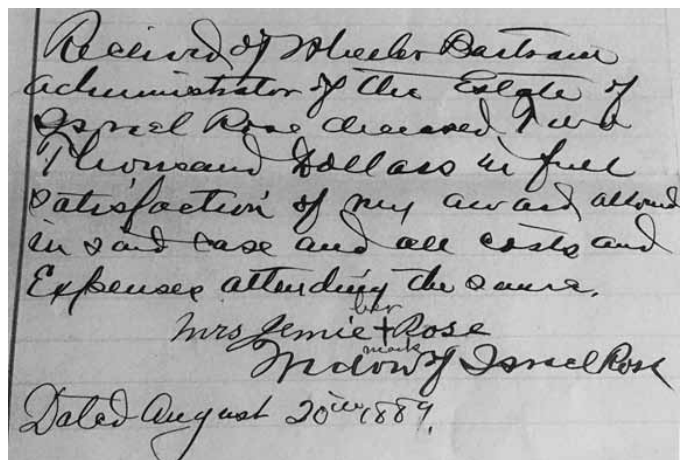 Received of Wheeler Bartram
administrator of the Estate of
Israel Rose deceased, Two
Thousand Dollars in full
satisfaction of my award allowed
in said case and all costs and
Expenses attending the same.
her
Mrs Jennie + Rose
mark
Widow of Israel Rose
Dated August 20th 1889.